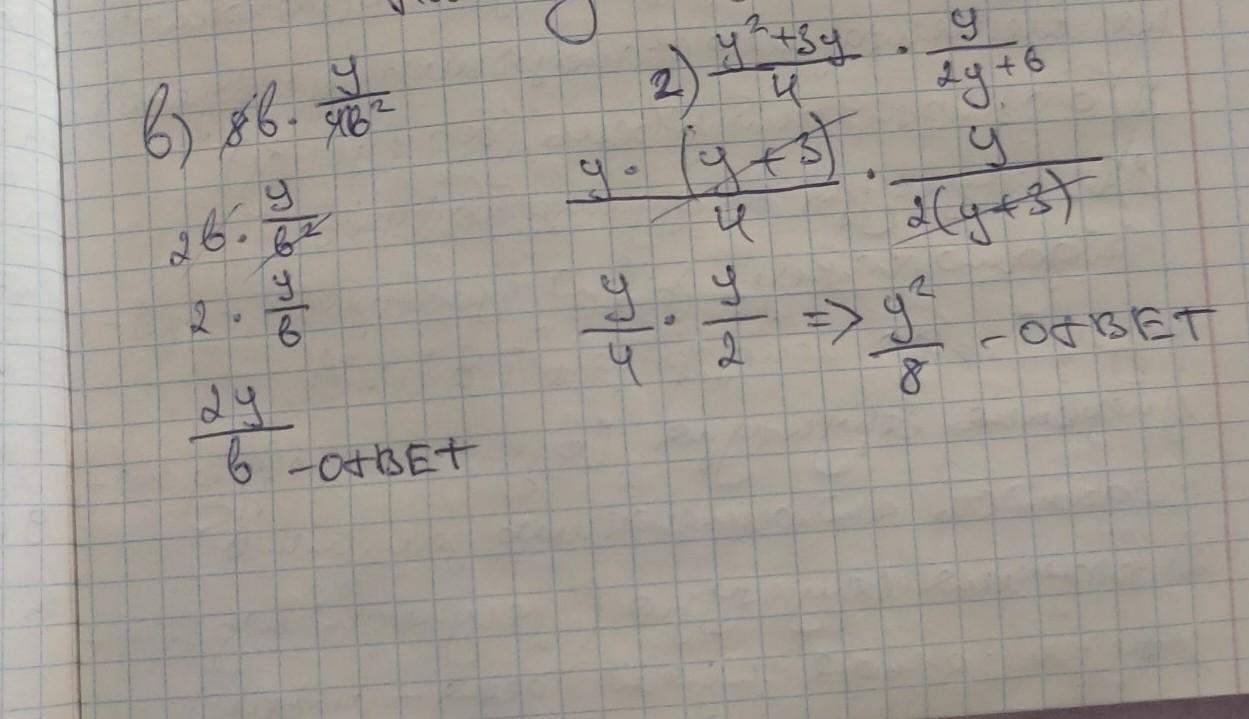 в) 8b · y/4b²
2b · y/b²
2 · y/b
2y/b - ответ
г) y²+3y/4 · y/2y+6
y·(y+3)/4 · y/2(y+3)
y/4 · y/2 => y²/8 - ответ